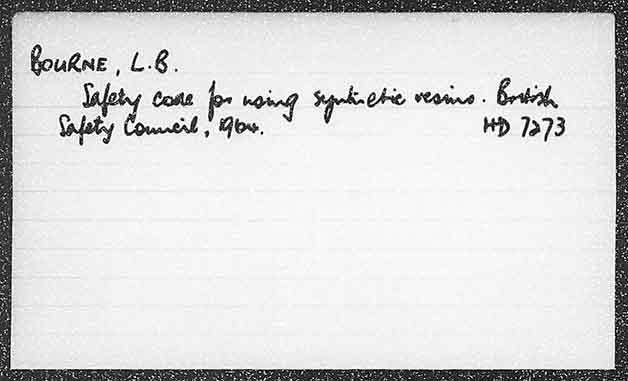 BOURNE, L.B.
Safety code for using synthetic resins. British
Safety Council, 1964. HD 7273